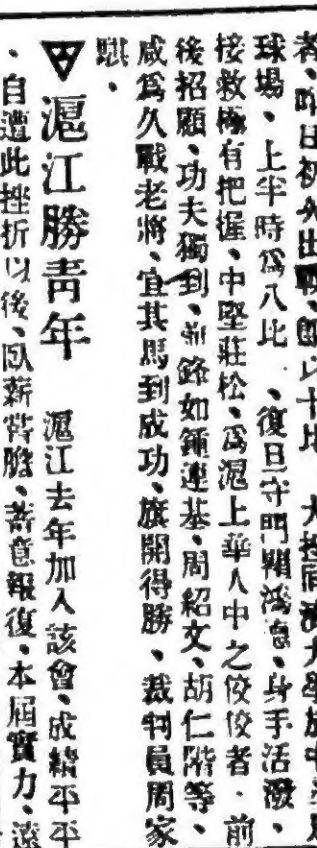 者、昨日初次出戰、即以十比 大挫同濟大學於中華足
球場、上半時爲八比 、復旦守門賴鴻 、身手活潑、
接救極有把握、中堅莊松、爲滬上華人中之佼佼者．前
後招顧、功夫獨到、前鋒如鍾連基、周紹文、胡仁階等、
咸爲久戰老將、宜其馬到成功、旗開得勝、裁判員周家
騏、
滬江勝青年 滬江去年加入該會、成績平平
、自遭此挫折以後、臥薪嘗膽、蓄意報復、本屆實力、遠